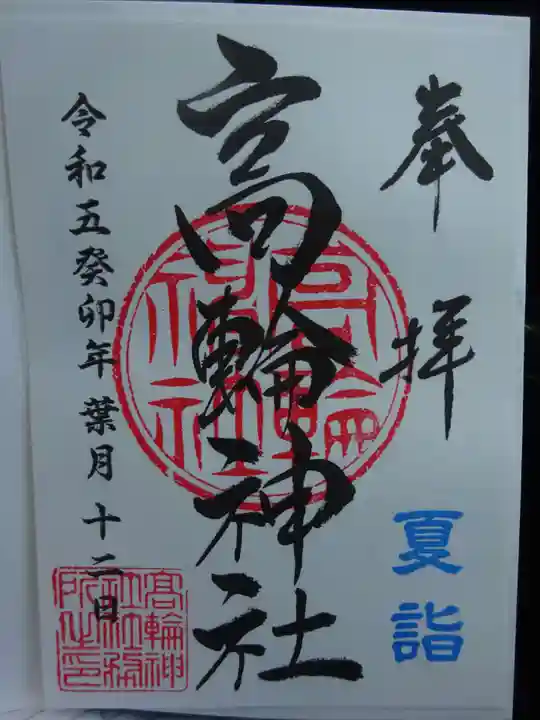 奉拝
夏詣
高輪神社
高輪神社
令和五癸卯年葉月十二日
髙輪神
社社務
所之印